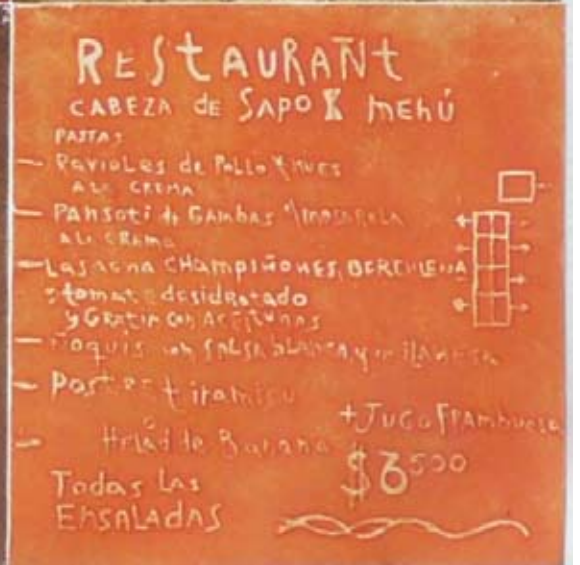 REStAURAÑt
CABEZA de SAPO menú
PASTAS
Ravioles de Pollo y nues
A LA CREMA
Pansoti de Gambas
A LA CREMA
Lasaena CHAmpiÑones, BERENJENA
tomate desidRatado
y GRatin con Aceitunas
Ñoquis con SALSA blanca y
Postres tiramisu
+JUGO FRAmbuesa
Helad de Banana
$3500
Todas Las
EnsALAdAs